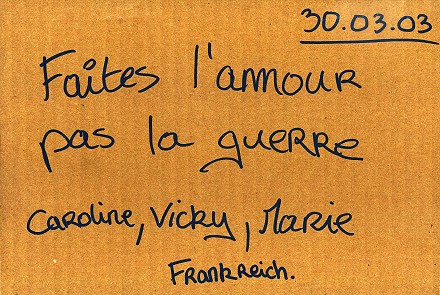 30.03.03
Faites l'amour
pas la guerre
Caroline, Vicky, Marie
Frankreich.